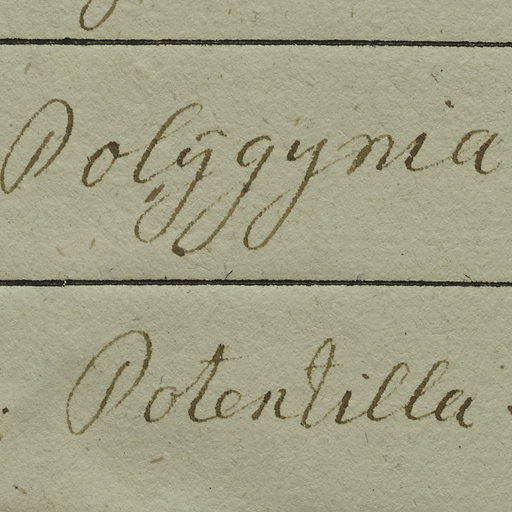 Polÿgÿnia
Potentilla.